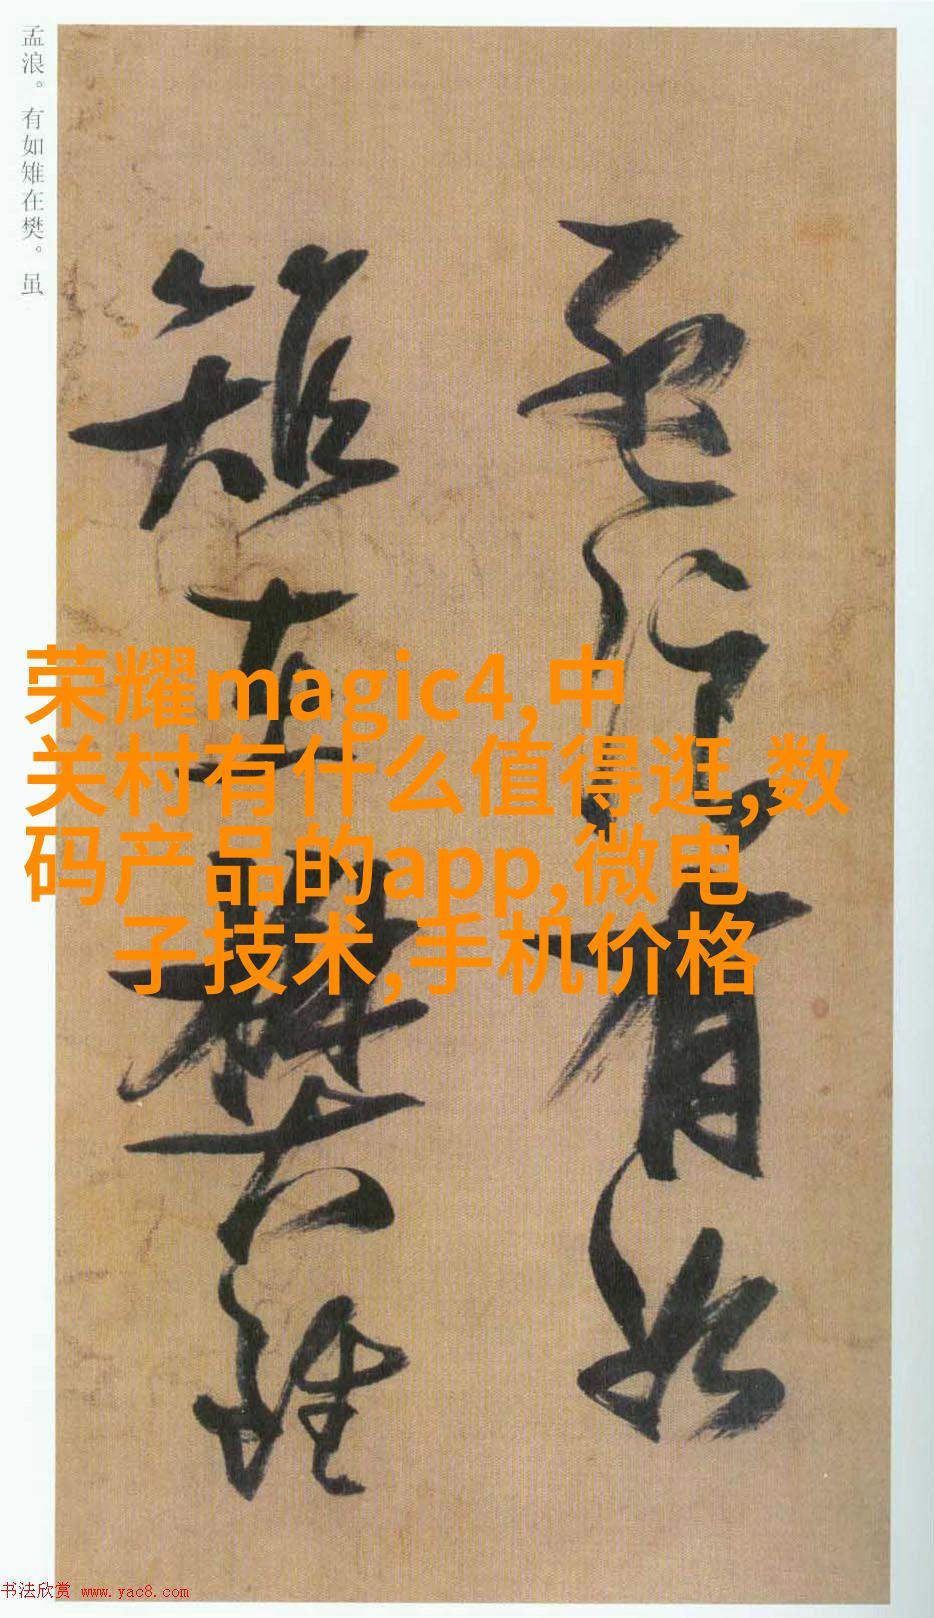 孟浪。有如雉在樊。虽
孟浪有如
雉在樊虽
荣耀magic4,中
关村有什么值得逛,数
码产品的app,微电
子技术,手机价格
书法欣赏 www.yac8.com